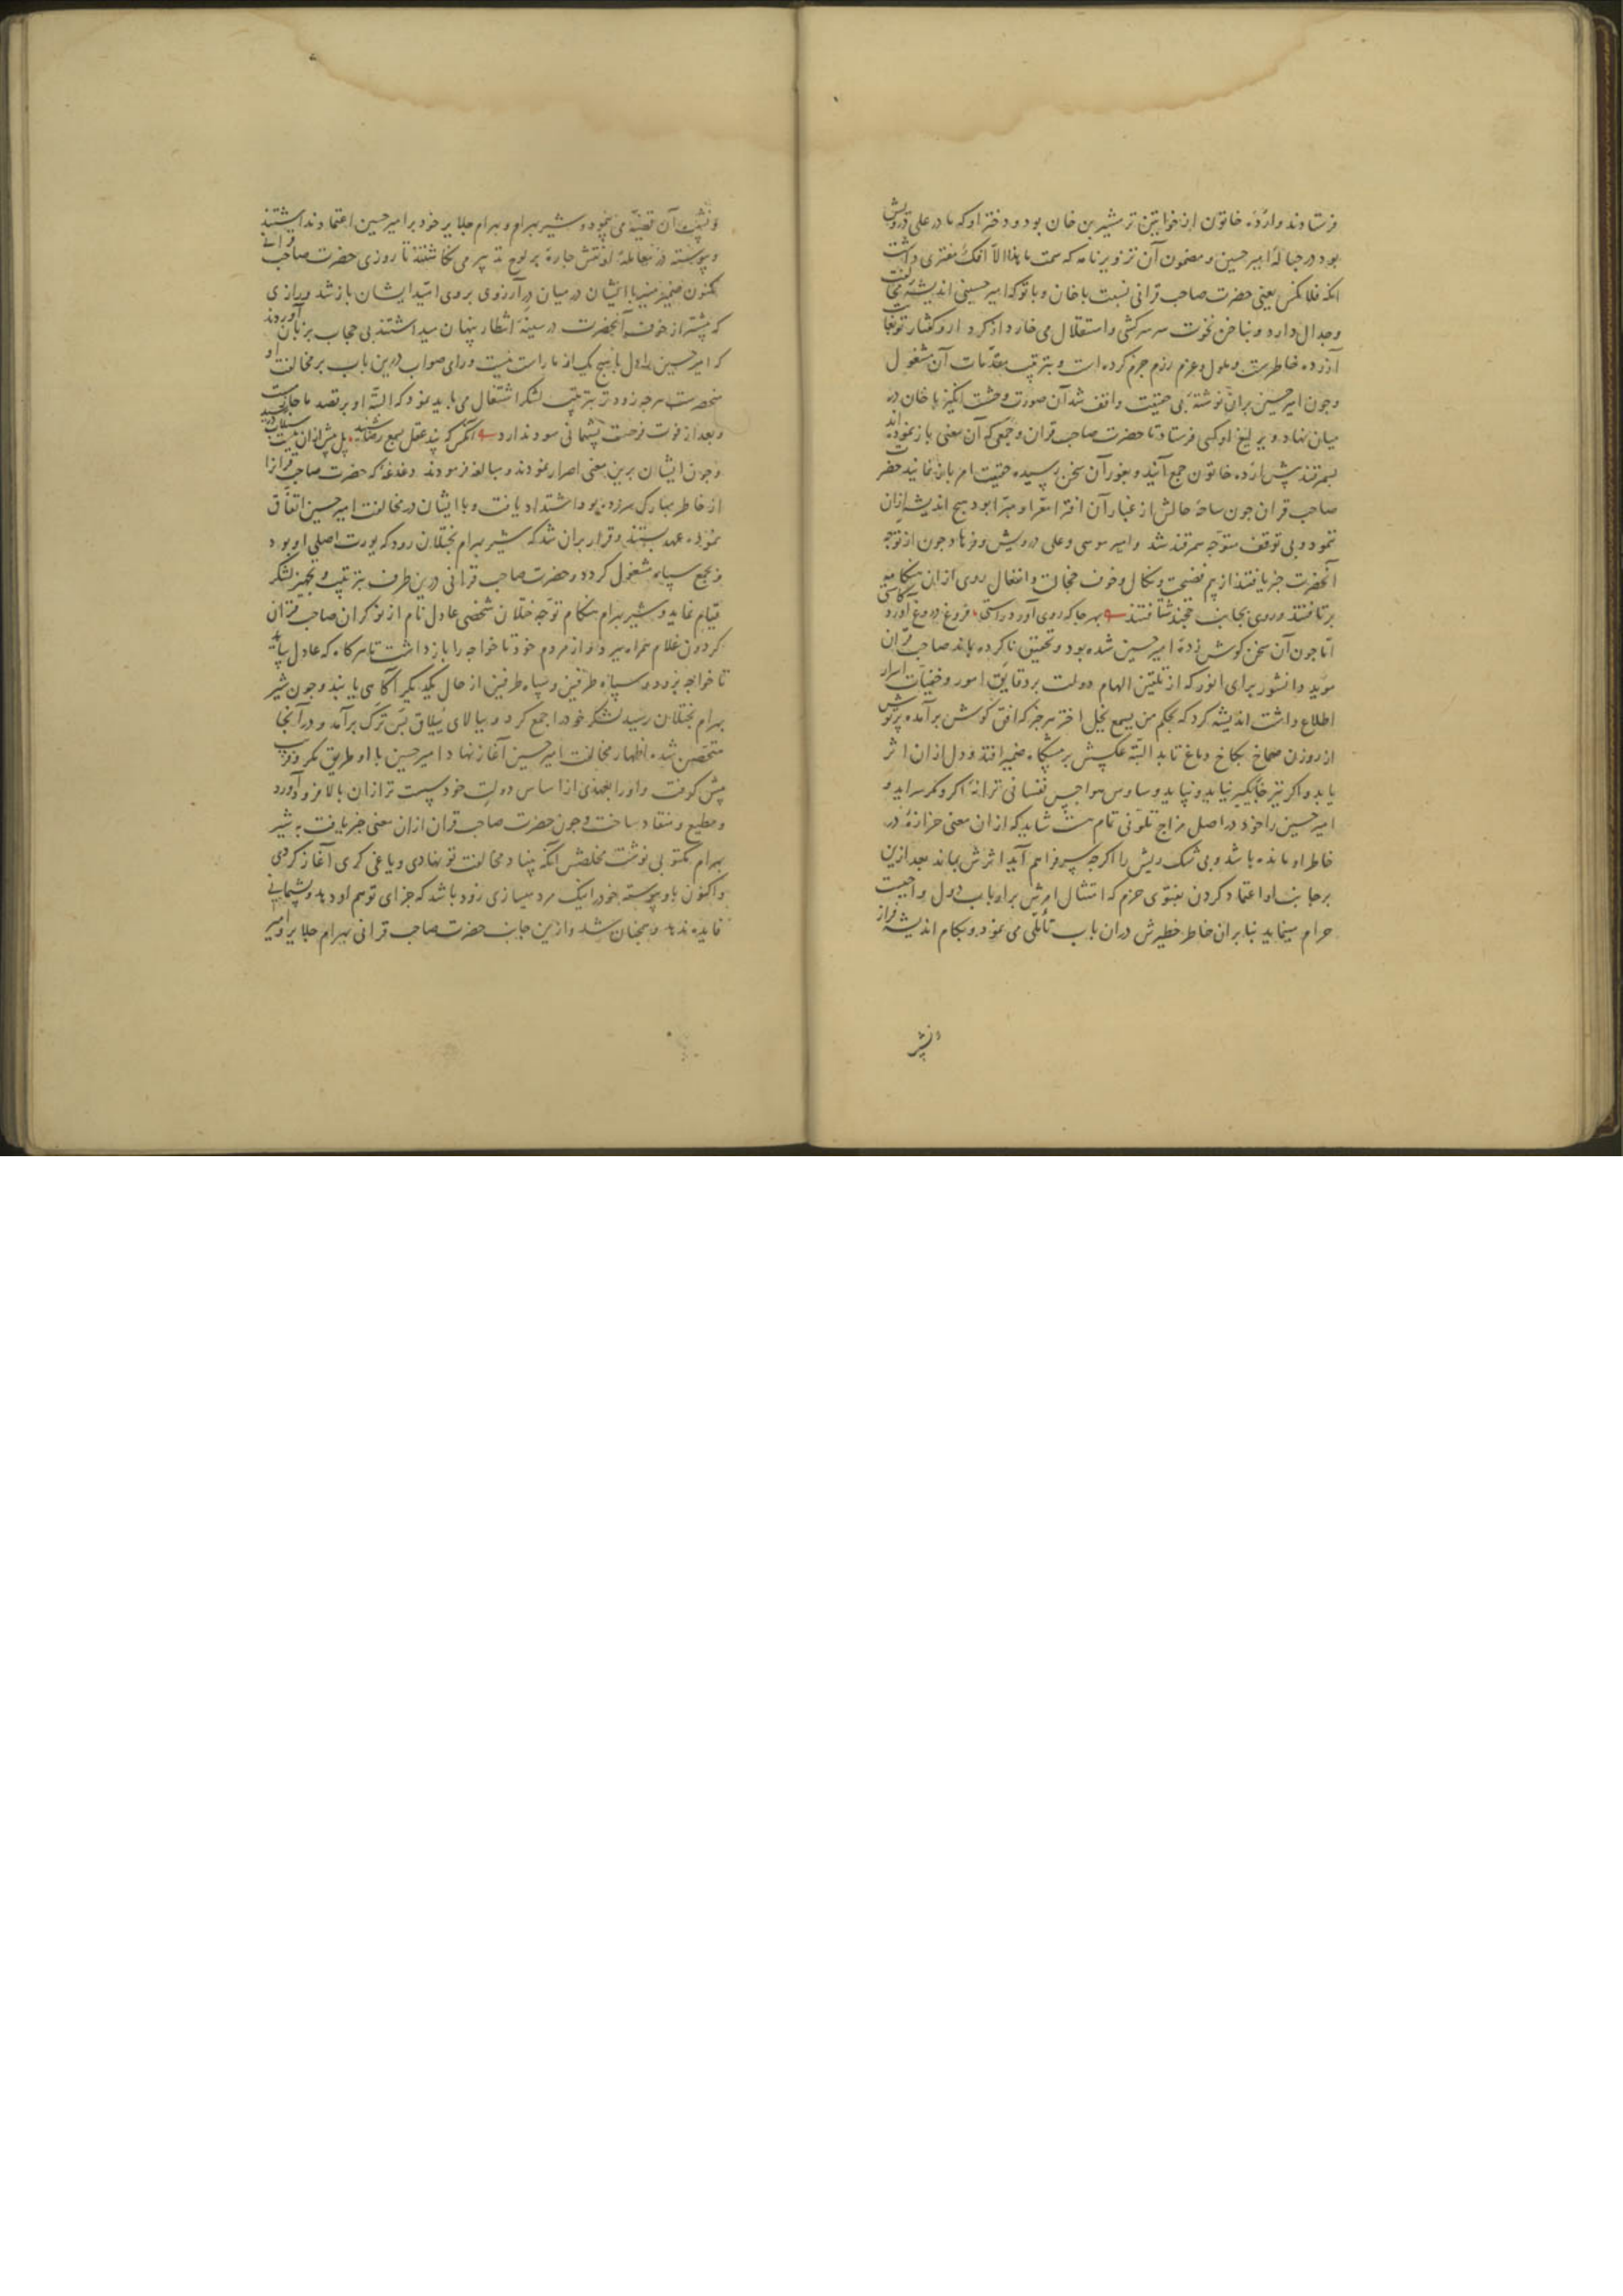 فرستادند واردُه خاتون از خواتین ترمشیرین خان بود و دختر او که مادر علی درویش
بود در حبالهٔ امیر حسین و مضمون آن تزویرنامه که سمت ما هذا الا افک مفتری داشت
انکه فلانکس یعنی حضرت صاحب قرانی نسبت با خان و با تو که امیر حسینی اندیشهٔ مخالفت
وجدال دارد و بناخن نخوت سر سرکشی و استقلال می خارد از کرد ار و کفتار تو بغایت
آزرده خاطرست و ملول و عزم رزم جزم کرده است و بترتیب مقدّمات آن مشغول
وجون امیر حسین بران نوشتهٔ بی حقیقت واقف شد آن صورت وحشت انکیز با خان در
میان نهاد و یرلیغ او کسی فرستاد تا حضرت صاحب قران وجمعی که آن معنی باز نموده اند
بسمرقند پیش ارده خاتون جمع آیند و بغور آن سخن رسیده حقیقت امر باز نمایند حضرت
صاحب قران جون ساحهٔ حالش از غبار آن افترا معرّا و مبرّا بود هیج اندیشه ازان
ننمود و بی توقف متوجه سمرقند شد و امیر موسی و علی درویش و فرهاد جون از توجه
آنحضرت خبر یافتند از بیم فضیحت و نکال و خوف خجالت و انفعال روی ازان هنکامه
برتافتند و روی بجانب خجند شتافتند بهر جا که روی آورد راستی فروغ دروغ آورد کاستی
امّا جون آن سخن کوش زدهٔ امیر حسین شده بود و تحقیق ناکرده بماند صاحب قران
موید دانشور برای انور که از تلقین الهام دولت بر دقایق امور و خفیّات اسرار
اطلاع داشت اندیشه کرد که بحکم من یسمع یخل اختر هر خبر که افق کوش برآمده پرتوش
از روزن صماخ بکاخ دماغ تابد البتّه عکسش بر پیشکاه ضمیر افتد و دل ازان اثر
یابد و اکر نیز خایکیر نیاید و نپاید و ساوس هواجس نفسانی ترانهٔ اکر و مکر سراید و
امیر حسین را خود در اصل مزاج تلوّنی تمام هست شاید که ازان معنی حزازهٔ در
خاطر او مانده باشد و بی شک ریش را اکرجه سر فراهم آید اثرش بماند بعد ازین
برجانب او اعتماد کردن بفتوی حزم که امتثال امرش بر ارباب دول واجبست
حرام مینماید بنابران خاطر خطیرش دران باب تأمّلی می نمود و بکام اندیشه فراز
و نشیب آن قضیّه می پیمود و شیر بهرام و بهرام جلایر خود بر امیر حسین اعتماد نداشتند
و پیوسته در معاملهٔ او نقش جارهٔ بر لوح تدبیر می نکاشتند تا روزی حضرت صاحب قرانی
مکنون ضمیر منیر با ایشان در میان در آرزوی بروی امّید ایشان باز شد و رازی
که پیشتر از خوف آنحضرت در سینهٔ انتظار پنهان میداشتند بی حجاب بر زبان آوردند
که امیر حسین را دل با هیچ یک از ما راست نیست و رای صواب درین باب بر مخالفت او
منحصرست هرجه زودتر بترتیب لشکر اشتغال می باید نمود که البتّه او بر قصد ما جازمست
و بعد از فوت فرصت پشیمانی سود ندارد آنکس که پند عقل بسمع رضا شنید پل پیش ازان بیست که سیلاب در رسید
وجون ایشان برین معنی اصرار نمودند و مبالغه فرمودند دغدغهٔ که حضرت صاحب قرانرا
از خاطر مبارک سرزده بود اشتداد یافت و با ایشان در مخالفت امیر حسین اتفاق
نموده عهد بستند و قرار بران شد که شیر بهرام بختلان رود که یورت اصلی او بود
و بجمع سپاه مشغول کردد و حضرت صاحب قرانی درین طرف بترتیب و تجهیز لشکر
قیام نماید و شیر بهرام هنکام توجه ختلان شخصی عادل نام از نوکران صاحب قران
کردون غلام همراه ببرد و از مردم خود تا خواجه را باز داشت تا هرکاه که عادل بیاید
تا خواجه برود و سپاه طرفین و سپاه طرفین از حال یکدیکر آکاهی یابند وجون شیر
بهرام بختلان رسید لشکر خود را جمع کرد و ببالای ییلاق بس ترک برآمد و در آنجا
متحصّن شده اظهار مخالفت امیر حسین آغاز نهاد امیر حسین با او طریق مکر و فریب
پیش کرفت و او را بعهدی از اساس دولت خود سست تر ازان بالا فرود آورد
و مطیع و منقاد ساخت وجون حضرت صاحب قران ازان معنی خبر یافت به شیر
بهرام مکتوبی نوشت مخلصش آنکه بنیاد مخالفت تو نهادی و یاغی کری آغاز کردی
و اکنون با او پیوسته خود را نیک مرد میسازی زود باشد که جزای تو هم او دهد و پشیمانی
فایده ندهد و همجنان شد و ازین جانب حضرت صاحب قرانی بهرام جلایر و امیر